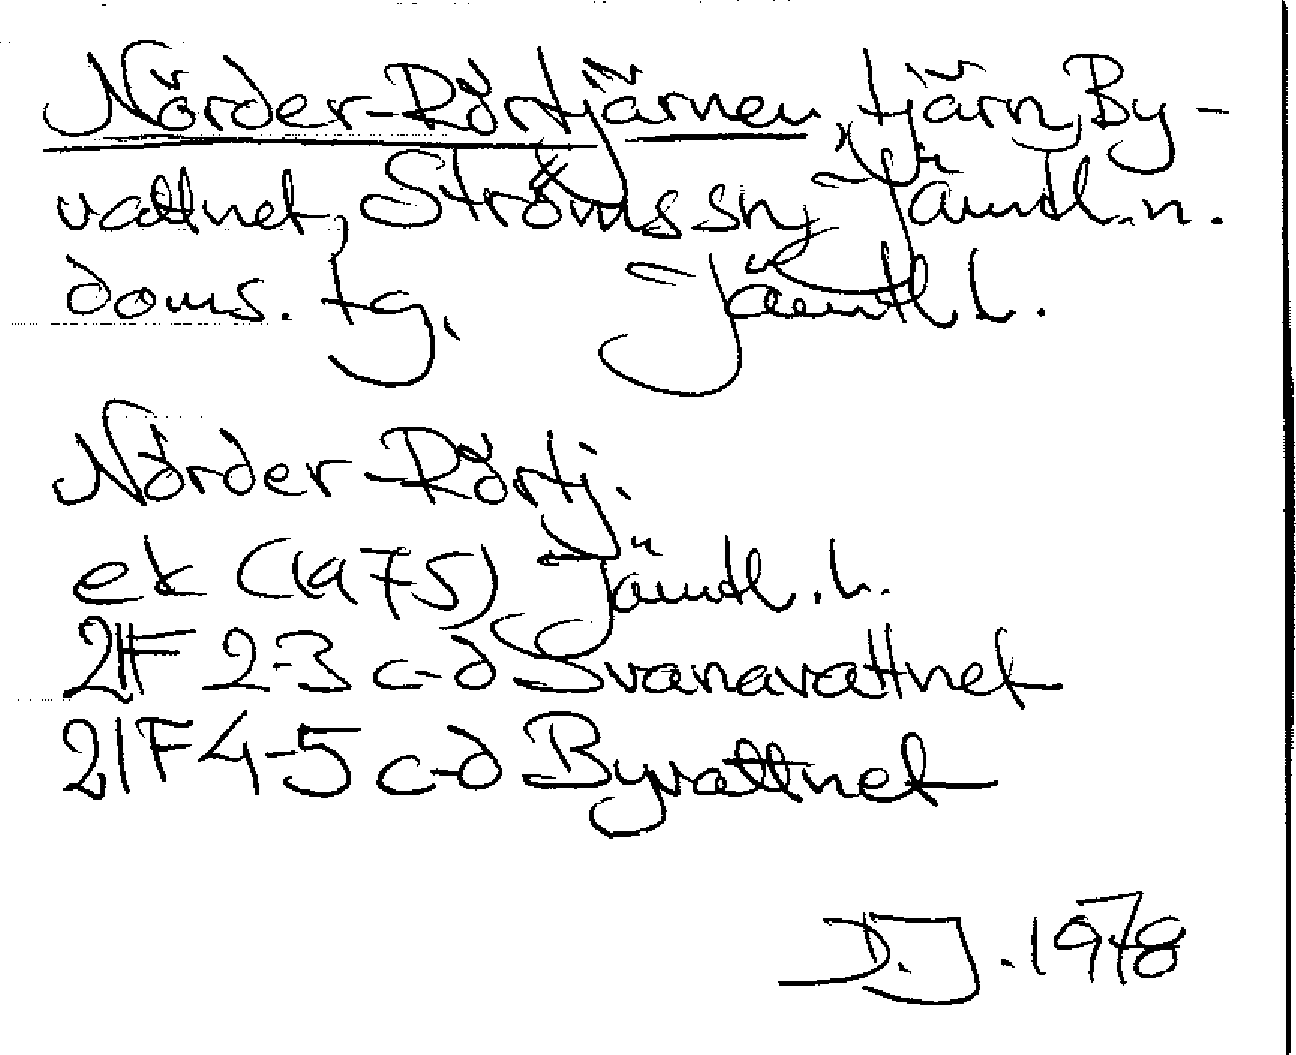 Nörder-Rörtjärnen, tjärn, By-
vattnet, Ströms sn, Jämtl. n.
doms. tg. Jämtl L.
Nörder-Rörtj.
ek (1975) Jämtl. L.
21F 2-3 c-d Svanavattnet
21F 4-5 c-d Byvattnet
D.J. 1978